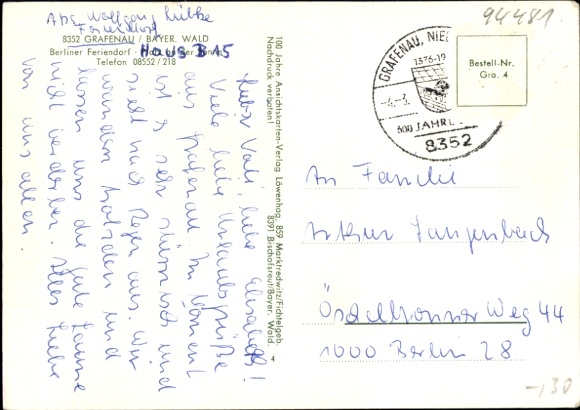 Abs. Wolfgang Lübke
Feriendorf
8352 GRAFENAU / BAYER. WALD
Berliner Feriendorf · Haus B 15
Telefon 08552 / 218
Lieber Vati, liebe Elisabeth!
Viele liebe Urlaubsgrüße
aus Grafenau. Im Moment
ist es sehr stürmisch und
sieht nach Regen aus. Wir
wandern trotzdem und
lassen uns die gute Laune
nicht verderben. Alles Liebe
von uns allen.
100 Jahre Ansichtskarten-Verlag Löwenhag, 859 Marktredwitz/Fichtelgeb.
Nachdruck verboten 8391 Bischofsreut/Bayer. Wald.
4
94481
GRAFENAU, NIE
1376-19
-4.-3.
600 JAHRE
8352
Bestell-Nr.
Gra. 4
An Familie
Arthur Langenbach
Öschelbronner Weg 44
1000 Berlin 28
-,30